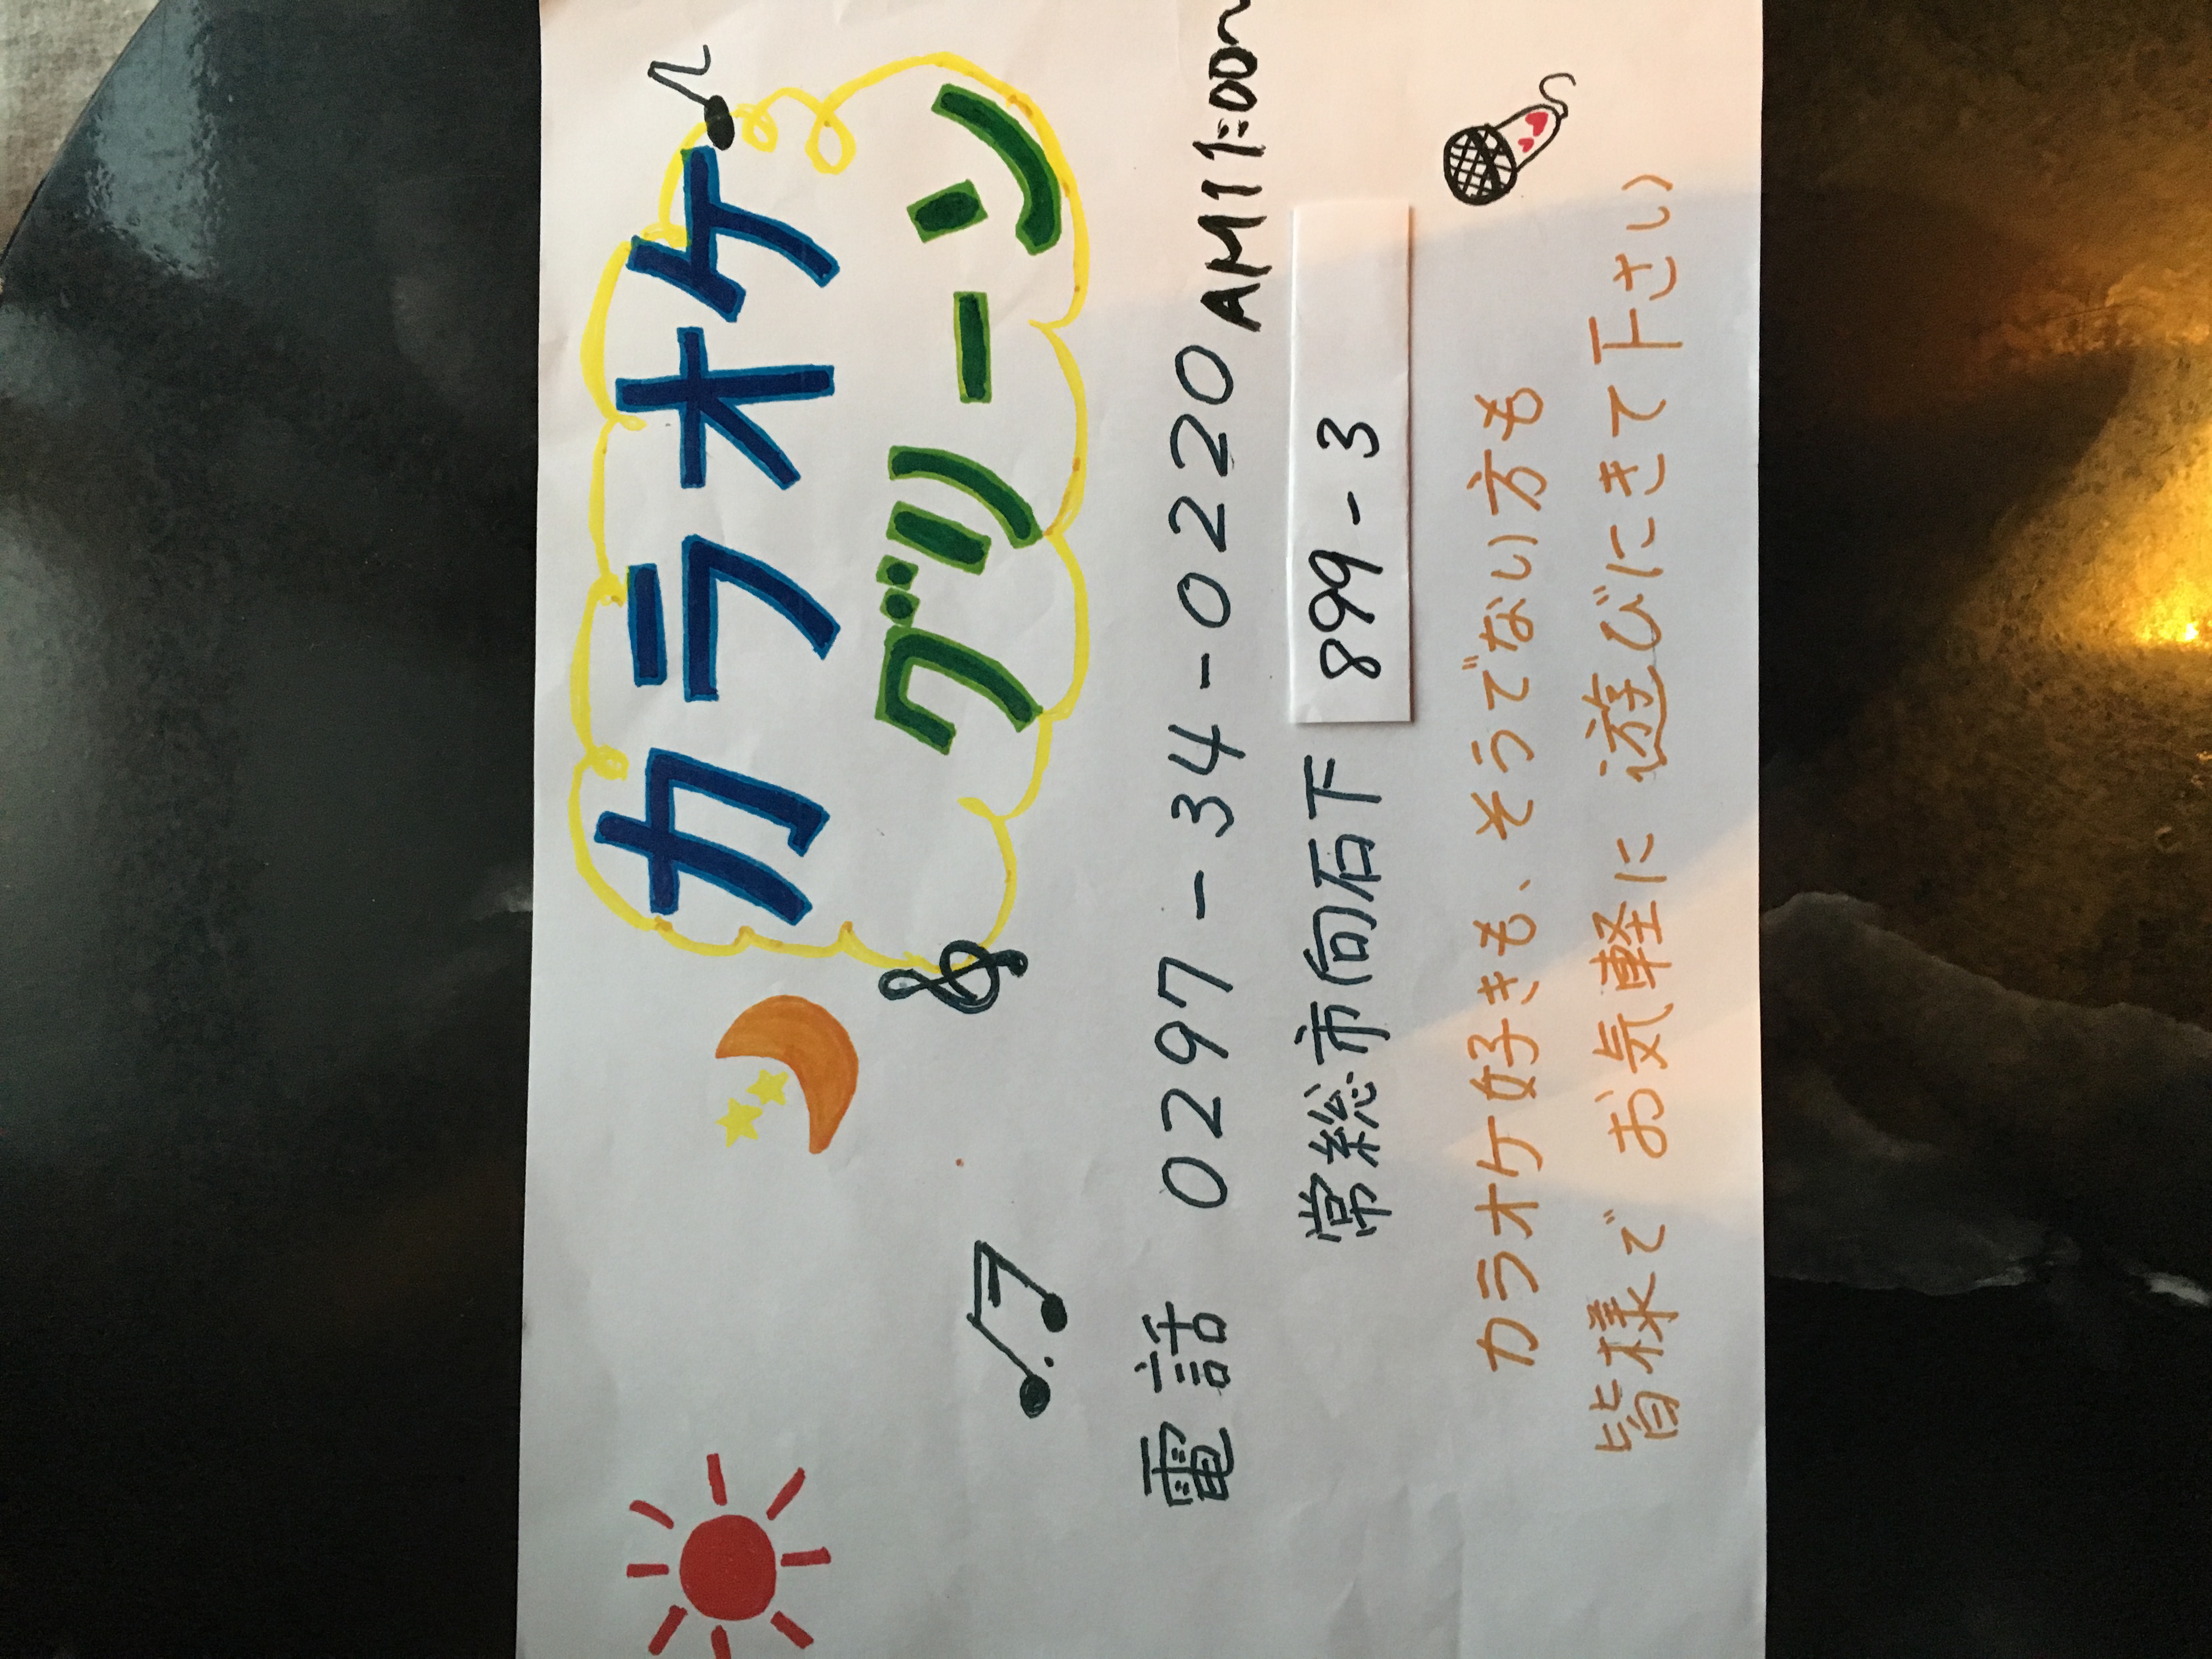 カラオケ
グリーン
電話 0297-34-0220 AM11:00〜
常総市向石下 899-3
カラオケ好きも、そうでない方も
皆様で お気軽に 遊びにきて下さい